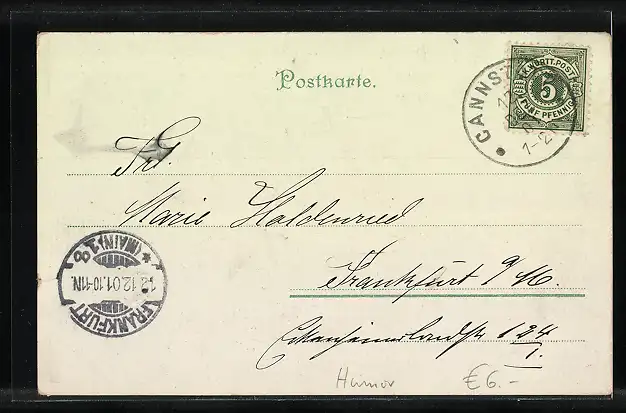 Postkarte.
K. WÜRTT. POST
5
FÜNF PFENNIG
CANNS
1-2
Frl.
Marie Haldenried
Frankfurt a/M.
Eckenheimerlandstr 124
I.
FRANKFURT
(MAIN) 1
12.01.10-11N.
Humor €6.-